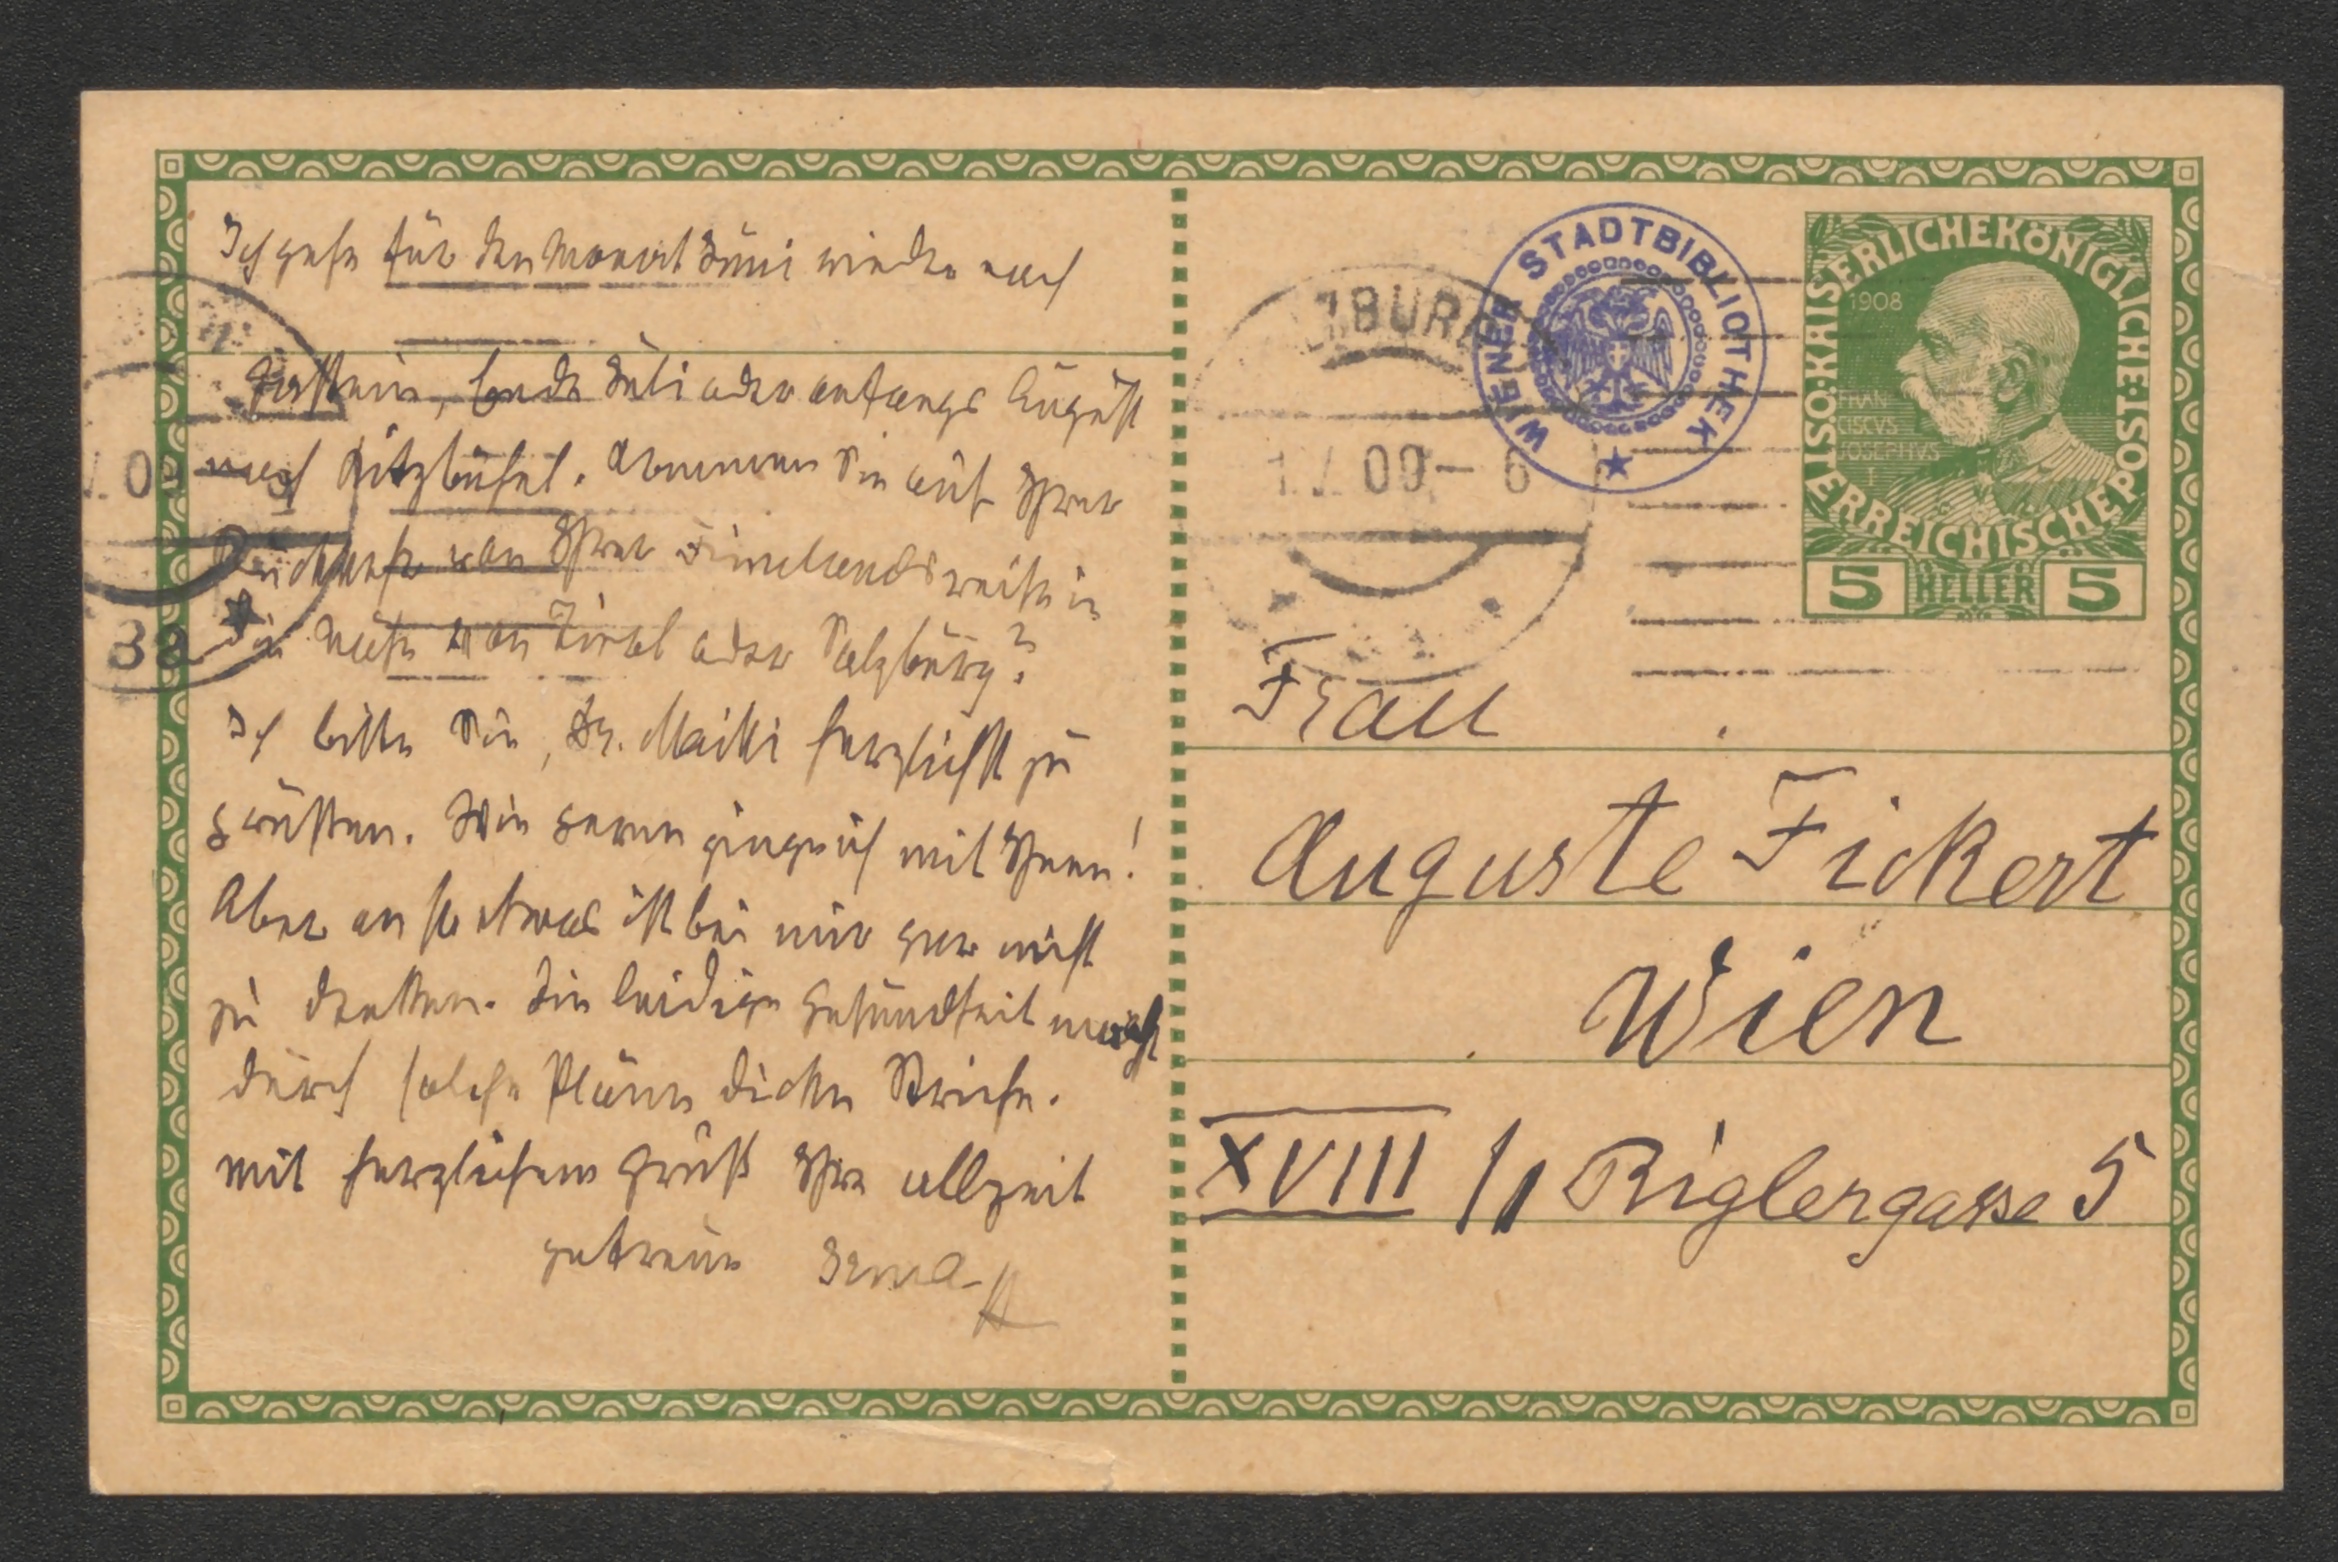 Ich gehe für den Monat Juni wieder nach
Gastein, Ende Juli oder anfangs August
nach Kitzbühel. Kommen Sie auf Ihrer
Rückkehr von Ihrer Finnlandsreise in
die Nähe von Tirol oder Salzburg?
Ich bitte Sie, Dr. Maikki herzlichst zu
grüssen. Wie gerne ginge ich mit Ihnen!
Aber an so etwas ist bei mir gar nicht
zu denken. Die leidige Gesundheit macht
durch solche Pläne dicke Striche.
Mit herzlichem Gruß Ihre allzeit
getreue Irma
WIENER STADTBIBLIOTHEK
ZBURG
09 - 6
KAISERLICHE KÖNIGLICHE ÖSTERREICHISCHE POST
1908
FRAN
CISCVS
JOSEPHVS
I
5 HELLER 5
Frau
Auguste Fickert
Wien
XVIII/1 Riglergasse 5